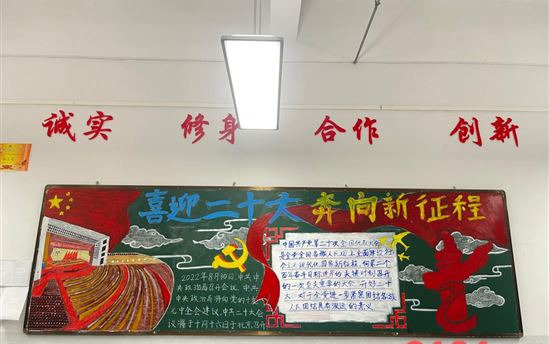 诚实 修身 合作 创新
喜迎二十大 奔向新征程
2022年8月30日,中共中
央政治局召开会议,中共
中央政治局将向党的十
九中全会建议,中共二十大会
议将于十月十六日于北京召开
中国共产党第二十次全国代表大会
是全党全国各族人民迈上全面建设
社会主义现代化国家新征程,向第二个
百年奋斗目标进军的关键时刻召开
的一次十分重要的大会,开好二十
大,对于
团结各族
人民团结具有深远的意义